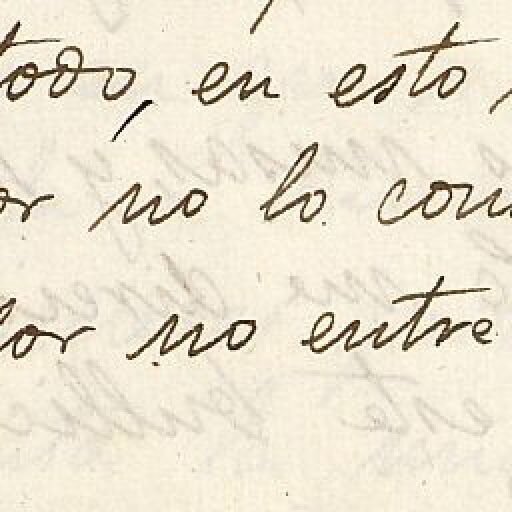 todo, en esto
or no lo con
lor no entre